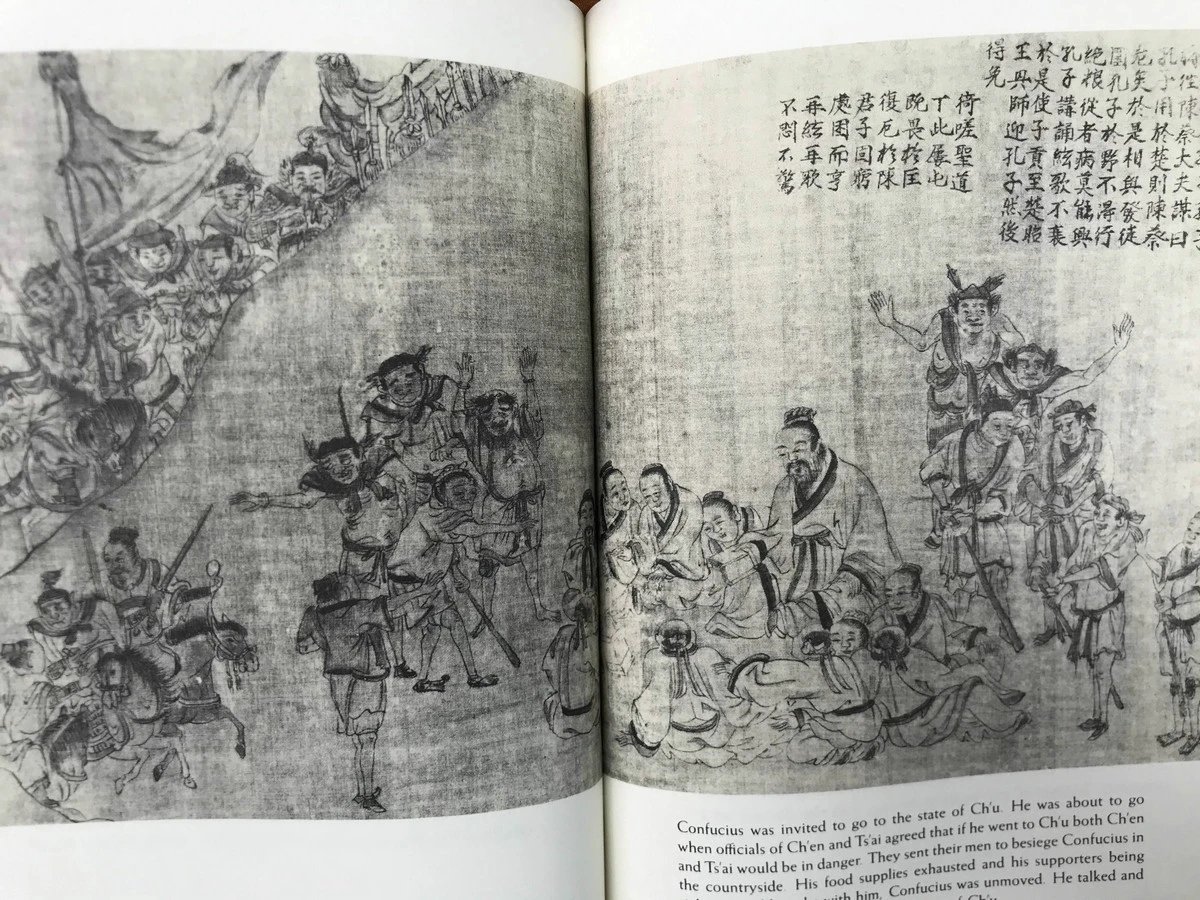 將往陳蔡大夫謀曰
孔子用於楚則陳蔡
危矣於是相與發徒
圍孔子於野不得行
絕粮從者病莫能興
孔子講誦絃歌不衰
於是使子貢至楚昭
王興師迎孔子然後
得免
猗嗟聖道
丁此屢屯
既畏於匡
復厄於陳
君子固窮
處困而亨
再絃再歌
不悶不驚
Confucius was invited to go to the state of Ch'u. He was about to go
when officials of Ch'en and Ts'ai agreed that if he went to Ch'u both Ch'en
and Ts'ai would be in danger. They sent their men to besiege Confucius in
the countryside. His food supplies exhausted and his supporters being
with him, Confucius was unmoved. He talked and
of Ch'u